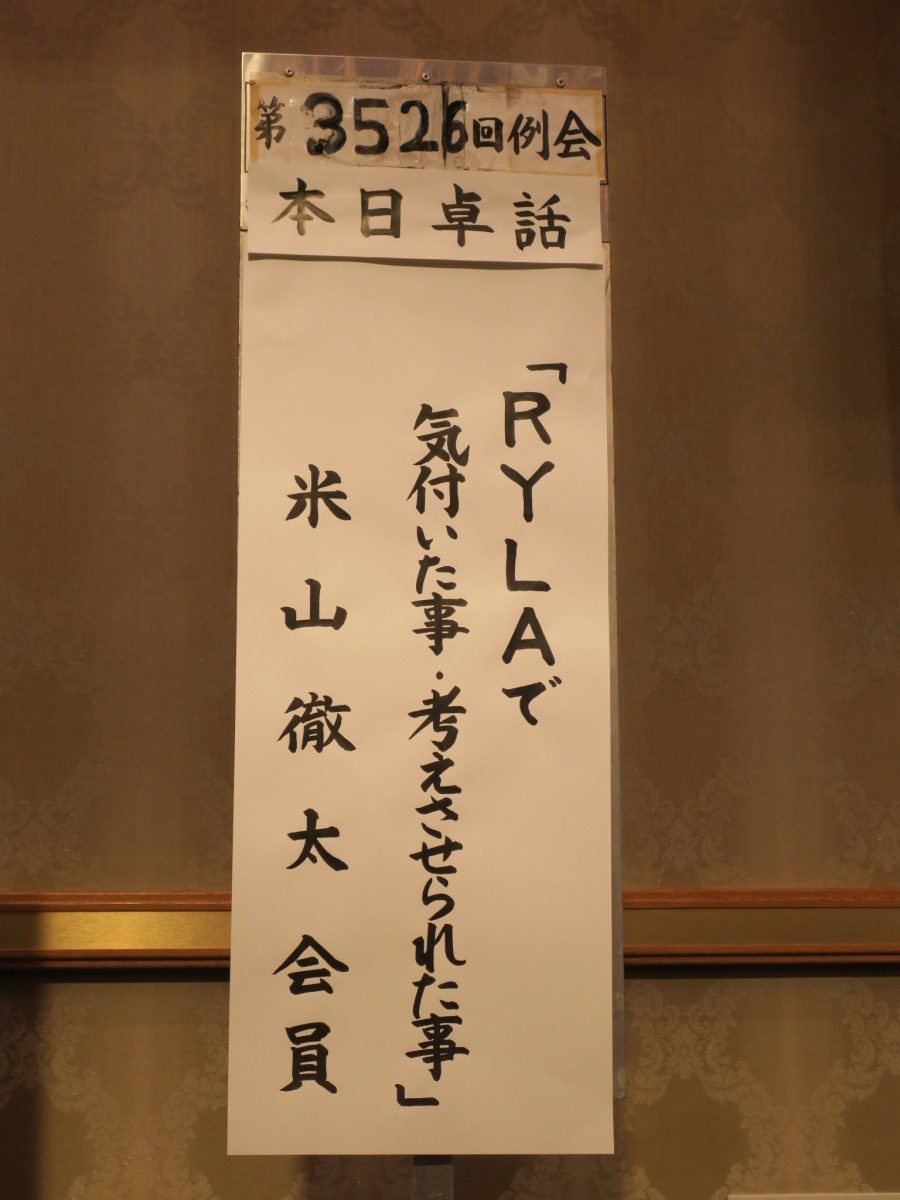 第3526回例会
本日卓話
「RYLAで
気付いた事・考えさせられた事」
米山徹太会員